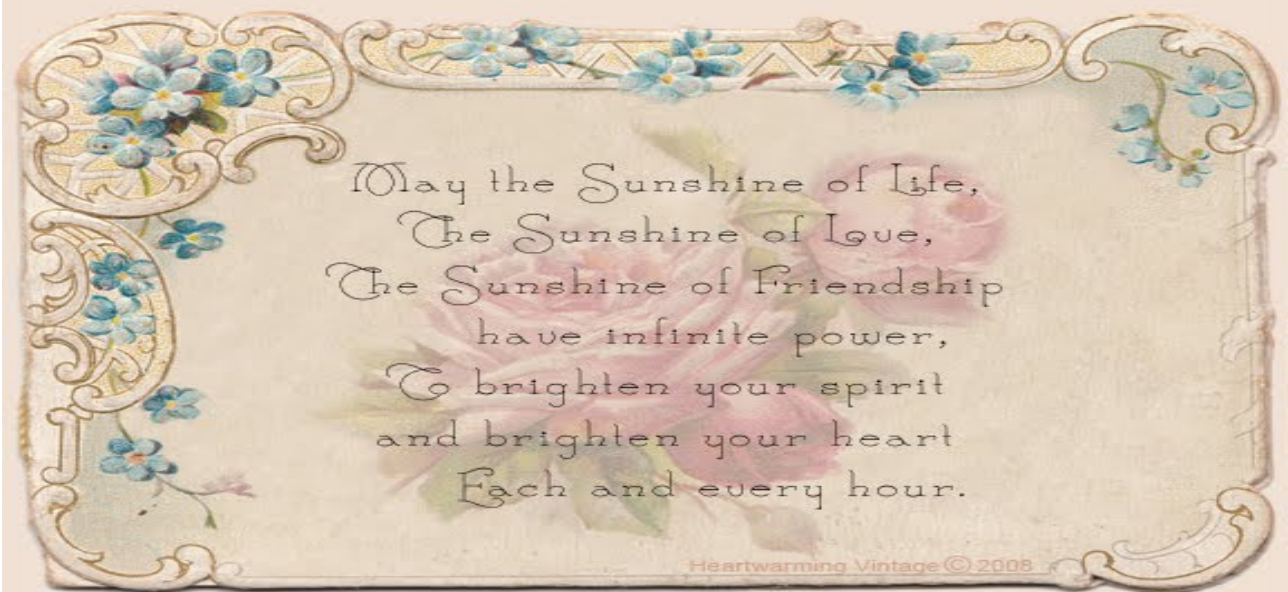 May the Sunshine of Life,
The Sunshine of Love,
The Sunshine of Friendship
have infinite power,
To brighten your spirit
and brighten your heart
Each and every hour.
Heartwarming Vintage © 2008